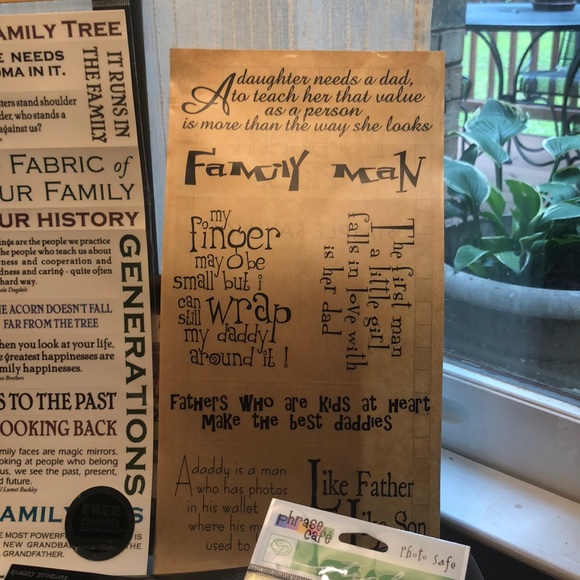 AMILY TREE
E NEEDS
OMA IN IT.
IT RUNS IN
THE FAMILY
sters stand shoulder
der, who stands a
against us?
FABRIC of
UR FAMILY
UR HISTORY
ings are the people we practice
he people who teach us about
ness and cooperation and
dness and caring - quite often
hard way.
GENERATIONS
HE ACORN DOESN'T FALL
FAR FROM THE TREE
hen you look at your life,
e greatest happinesses are
amily happinesses.
S TO THE PAST
OOKING BACK
mily faces are magic mirrors.
oking at people who belong
us, we see the past, present,
d future.
FAMILY
FREE
E MOST POWERFUL
IS
NEW GRANDBAB
THE
GRANDFATHER.
quality products
A daughter needs a dad,
to teach her that value
as a person
is more than the way she looks
Family Man
my
finger
may be
small but i
can
still wrap
my daddy
around it !
The first man
a little girl
falls in love with
is her dad
Fathers who are kids at heart
make the best daddies
A daddy is a man
who has photos
in his wallet
where his m
used to
Like Father
Like Son
phrase
café
Photo Safe